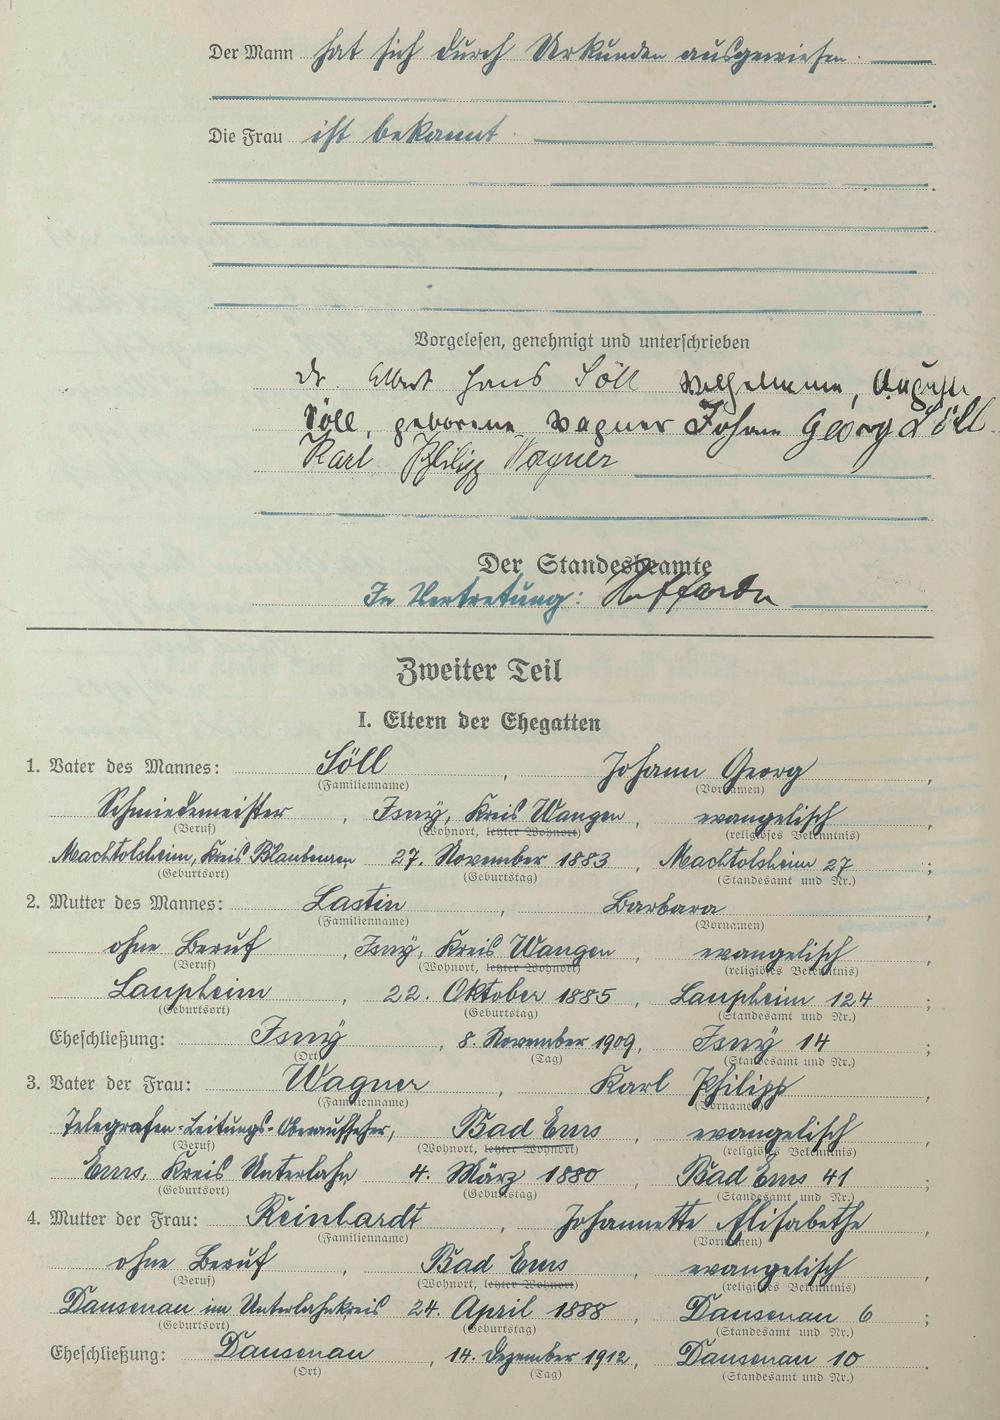 Der Mann hat sich durch Urkunden ausgewiesen.
Die Frau ist bekannt.
Vorgelesen, genehmigt und unterschrieben
Dr. Albert Hans Söll Wilhelmine, Auguste
Söll, geborene Wagner Johann Georg Söll
Karl Philipp Wagner
Der Standesbeamte
In Vertretung:
Zweiter Teil
I. Eltern der Ehegatten
1. Vater des Mannes: Söll, Johann Georg,
(Familienname) (Vornamen)
Schmiedemeister, Isny, Kreis Wangen, evangelisch,
(Beruf) (Wohnort, letzter Wohnort) (religiöses Bekenntnis)
Machtolsheim, Kreis Blaubeuren 27. November 1883 Machtolsheim 27;
(Geburtsort) (Geburtstag) (Standesamt und Nr.)
2. Mutter des Mannes: Lastin, Barbara,
(Familienname) (Vornamen)
ohne Beruf, Isny, Kreis Wangen, evangelisch,
(Beruf) (Wohnort, letzter Wohnort) (religiöses Bekenntnis)
Laupheim, 22. Oktober 1885, Laupheim 124;
(Geburtsort) (Geburtstag) (Standesamt und Nr.)
Eheschließung: Isny, 8. November 1909, Isny 14;
(Ort) (Tag) (Standesamt und Nr.)
3. Vater der Frau: Wagner, Karl Philipp,
(Familienname) (Vorname)
Telegrafen-Leitungs-Oberaufseher, Bad Ems, evangelisch,
(Beruf) (Wohnort, letzter Wohnort) (religiöses Bekenntnis)
Ems, Kreis Unterlahn 4. März 1880, Bad Ems 41;
(Geburtsort) (Geburtstag) (Standesamt und Nr.)
4. Mutter der Frau: Reinhardt, Johannette Elisabethe,
(Familienname) (Vornamen)
ohne Beruf, Bad Ems, evangelisch,
(Beruf) (Wohnort, letzter Wohnort) (religiöses Bekenntnis)
Dausenau im Unterlahnkreis 24. April 1888, Dausenau 6;
(Geburtsort) (Geburtstag) (Standesamt und Nr.)
Eheschließung: Dausenau, 14. Dezember 1912, Dausenau 10.
(Ort) (Tag) (Standesamt und Nr.)